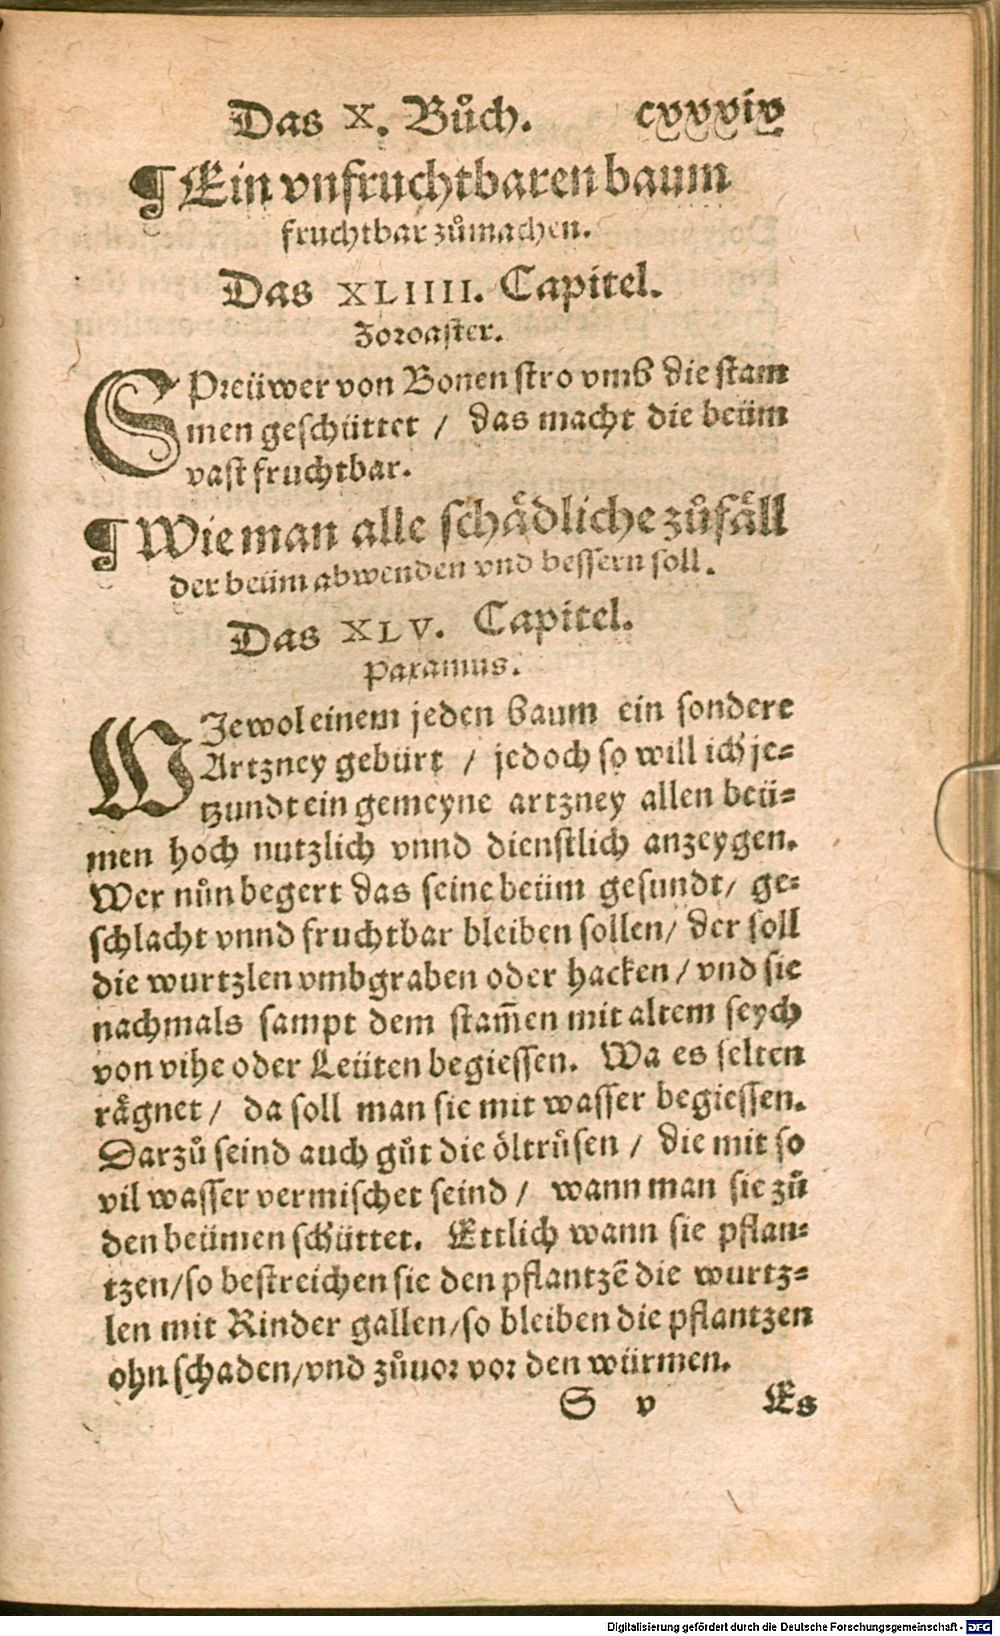 Das X. Bůch. cxxxix
¶ Ein vnfruchtbaren baum
fruchtbar zůmachen.
Das XLIIII. Capitel.
Zoroaster.
SPreüwer von Bonen stro vmb die stam
men geschüttet / das macht die beüm
vast fruchtbar.
¶ Wie man alle schådliche zůfåll
der beüm abwenden vnd bessern soll.
Das XLV. Capitel.
Paxamus.
WJewol einem jeden baum ein sondere
Artzney gebürt / jedoch so will ich je-
tzundt ein gemeyne artzney allen beü-
men hoch nutzlich vnnd dienstlich anzeygen.
Wer nůn begert das seine beüm gesundt / ge-
schlacht vnnd fruchtbar bleiben sollen / der soll
die wurtzlen vmbgraben oder hacken / vnd sie
nachmals sampt dem stam̃en mit altem seych
von vihe oder Leüten begiessen. Wa es selten
rågnet / da soll man sie mit wasser begiessen.
Darzů seind auch gůt die öltrůsen / die mit so
vil wasser vermischet seind / wann man sie zů
den beümen schüttet. Ettlich wann sie pflan-
tzen / so bestreichen sie den pflantzẽ die wurtz-
len mit Rinder gallen / so bleiben die pflantzen
ohn schaden / vnd zůuor vor den würmen.
S v Es
Digitalisierung gefördert durch die Deutsche Forschungsgemeinschaft - DFG